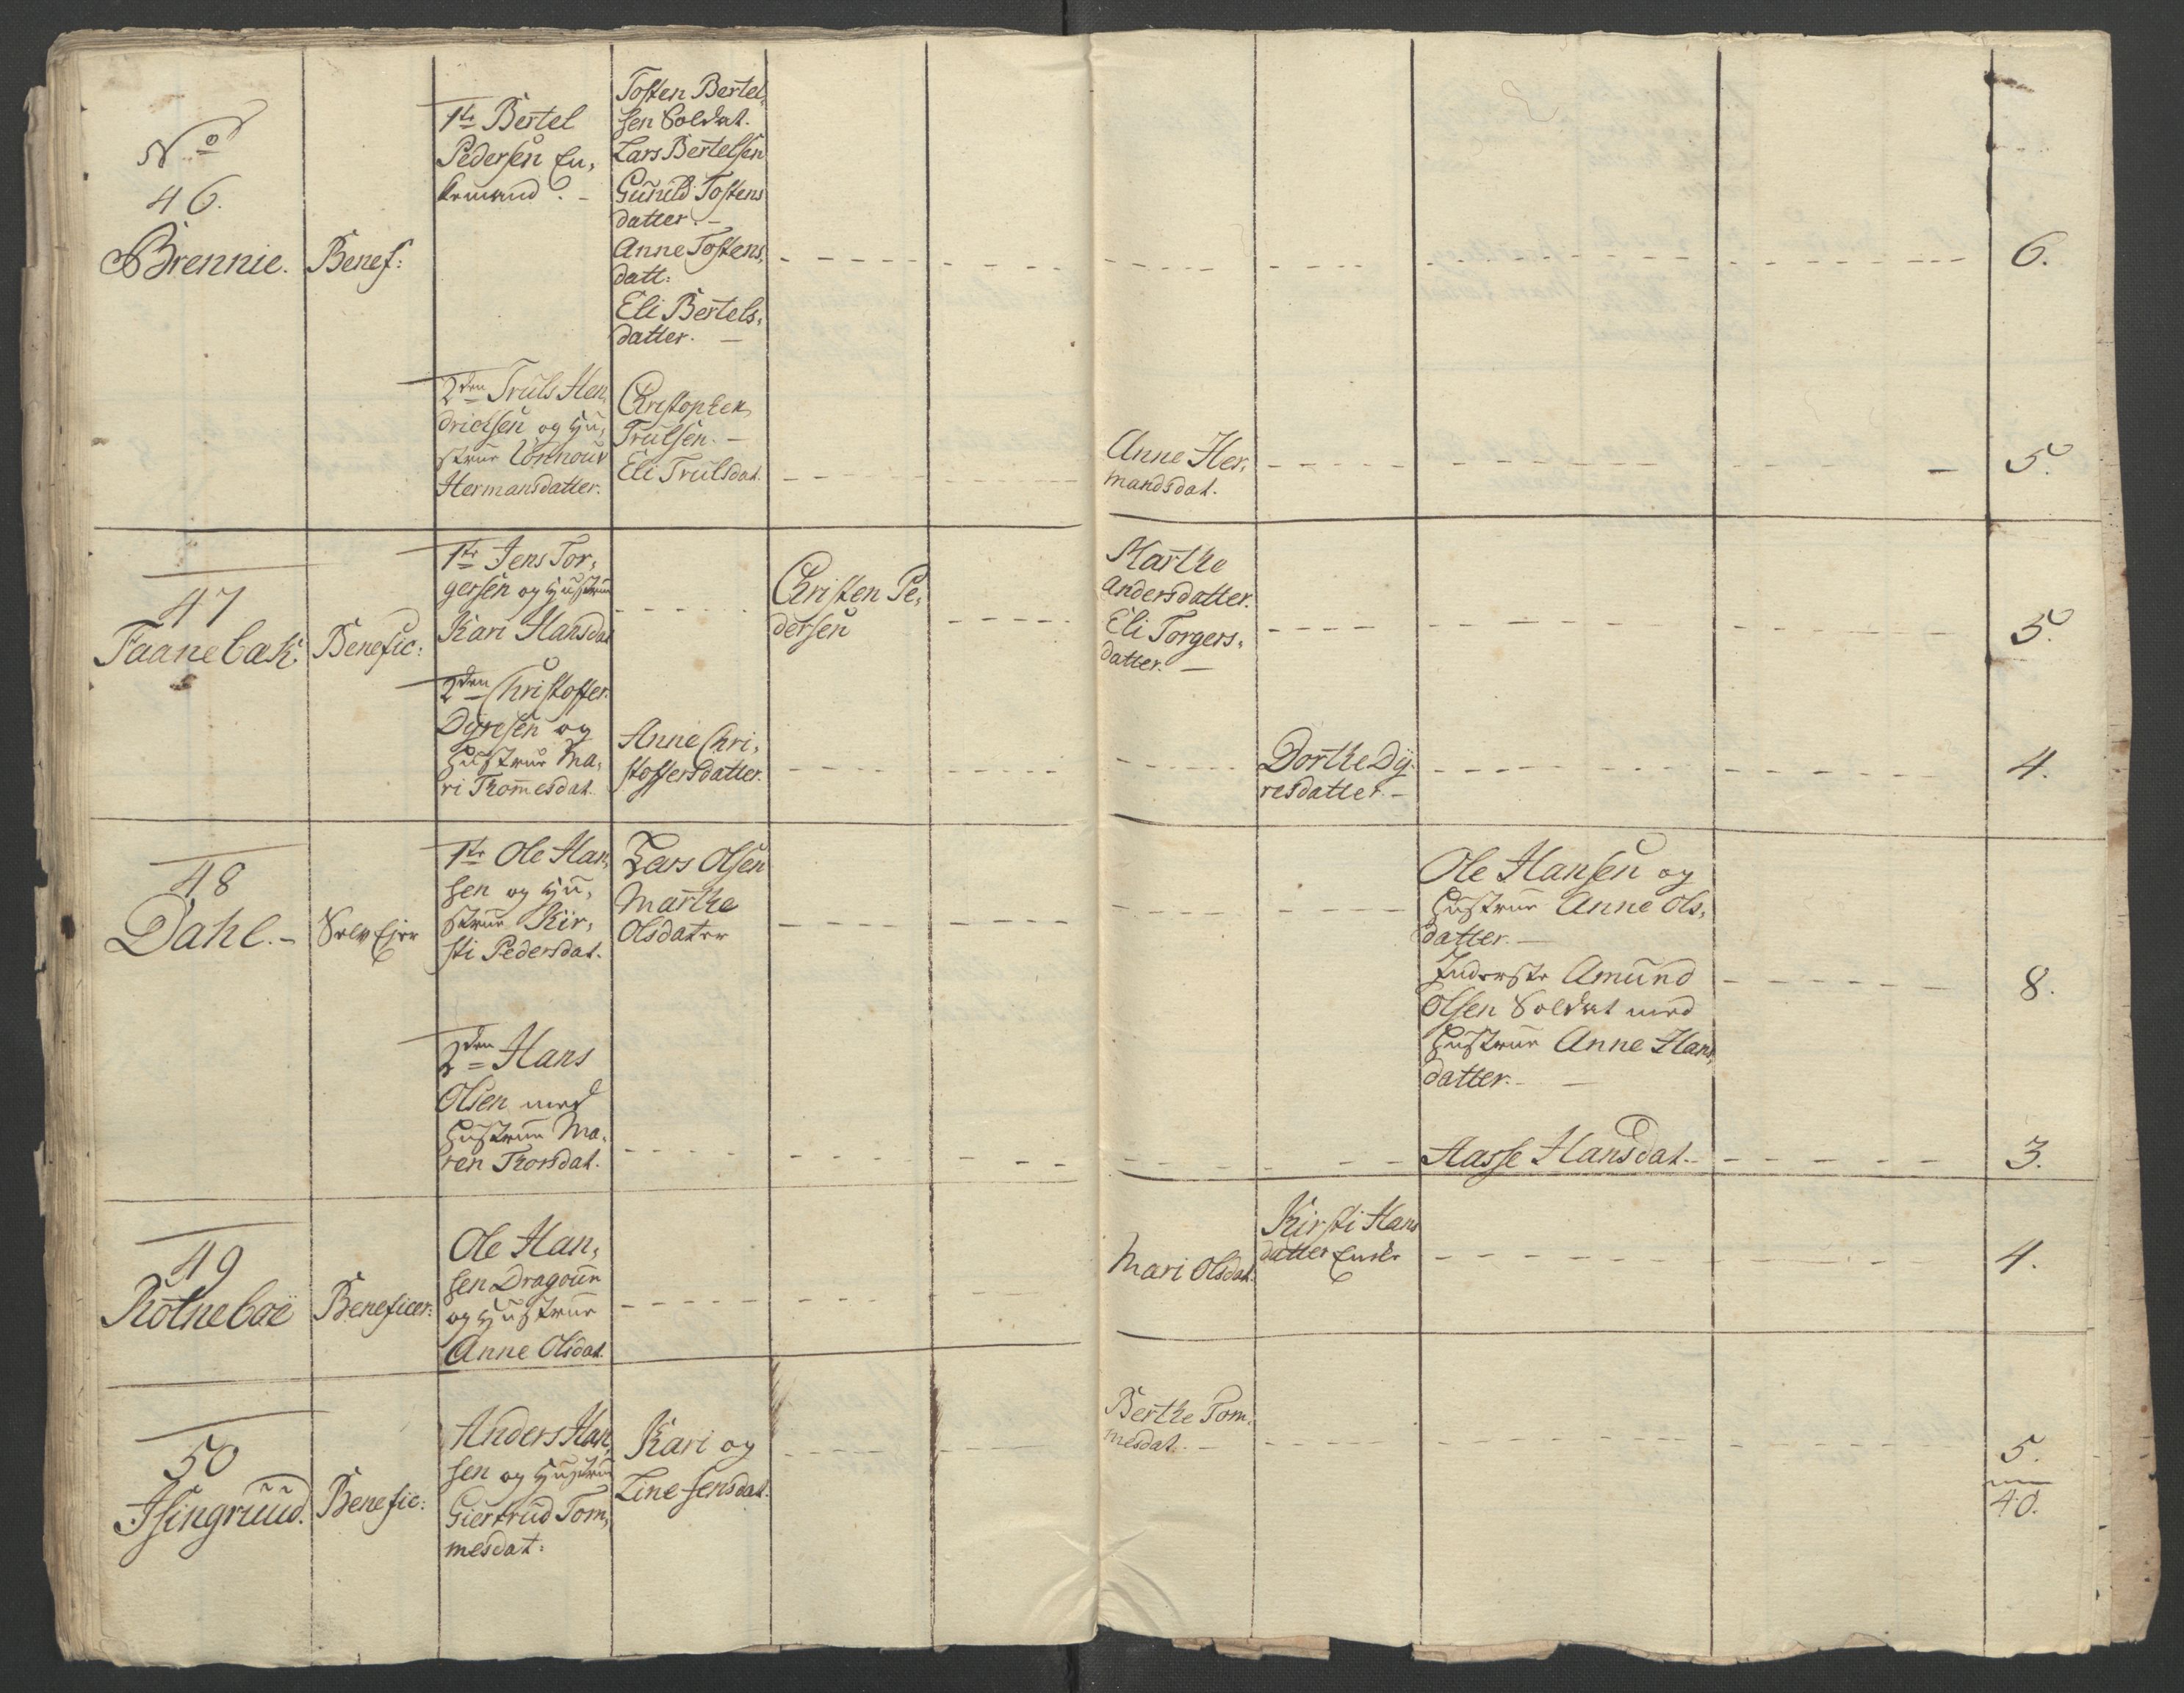 No
46.
Brennie.
Benef:
1te Bertel
Pedersen En,
kemand. -
Tosten Bertel,
sen Soldat.
Lars Bertelsen
Gunild Tostens
datter. -
Anne Tostens,
datt:
Eli Bertels,
datter. -
6.
2den Truls Hen,
drichsen og Hu,
strue
Hermansdatter.
Christopher
Trulsen. -
Eli Trulsdat.
Anne Her,
mandsdat.
5.
47
Faanebæk
Benefic:
1te Jens Tor,
gersen og Hustrue
Kari Hansdat
Christen Pe,
dersen
Marthe
Andersdatter.
Eli Torgers,
datter. -
5.
2den Christoffer
Dyresen og
Hustrue Ma,
ri Thommesdat.
Anne Chri,
stoffersdatter.
Dorthe Dÿ,
resdatter. -
4.
48
Dahl. -
Selv Ejer
1te Ole Han,
sen og Hu,
strue Kir,
sti Pedersdat.
Lars Olsen
Marthe
Olsdater
Ole Hansen og
Hustrue Anne Ols,
datter. -
Inderste Amund
Olsen Soldat med
Hustrue Anne Hans,
datter. -
8.
2den Hans
Olsen med
Hustrue Ma,
ren Thorsdat.
Aasse Hansdat.
3.
49
Rotneboe
Beneficer:
Ole Han,
sen Dragoun
og Hustrue
Anne Olsdat.
Mari Olsdat.
Kirsti Hans
datter Enke
4.
50
Isingruud.
Benefic:
Anders Han,
sen og Hustrue
Giertrud Tom,
mesdat:
Kari og
Line Jensdat.
Berthe Tom,
mesdat. -
5.
40.